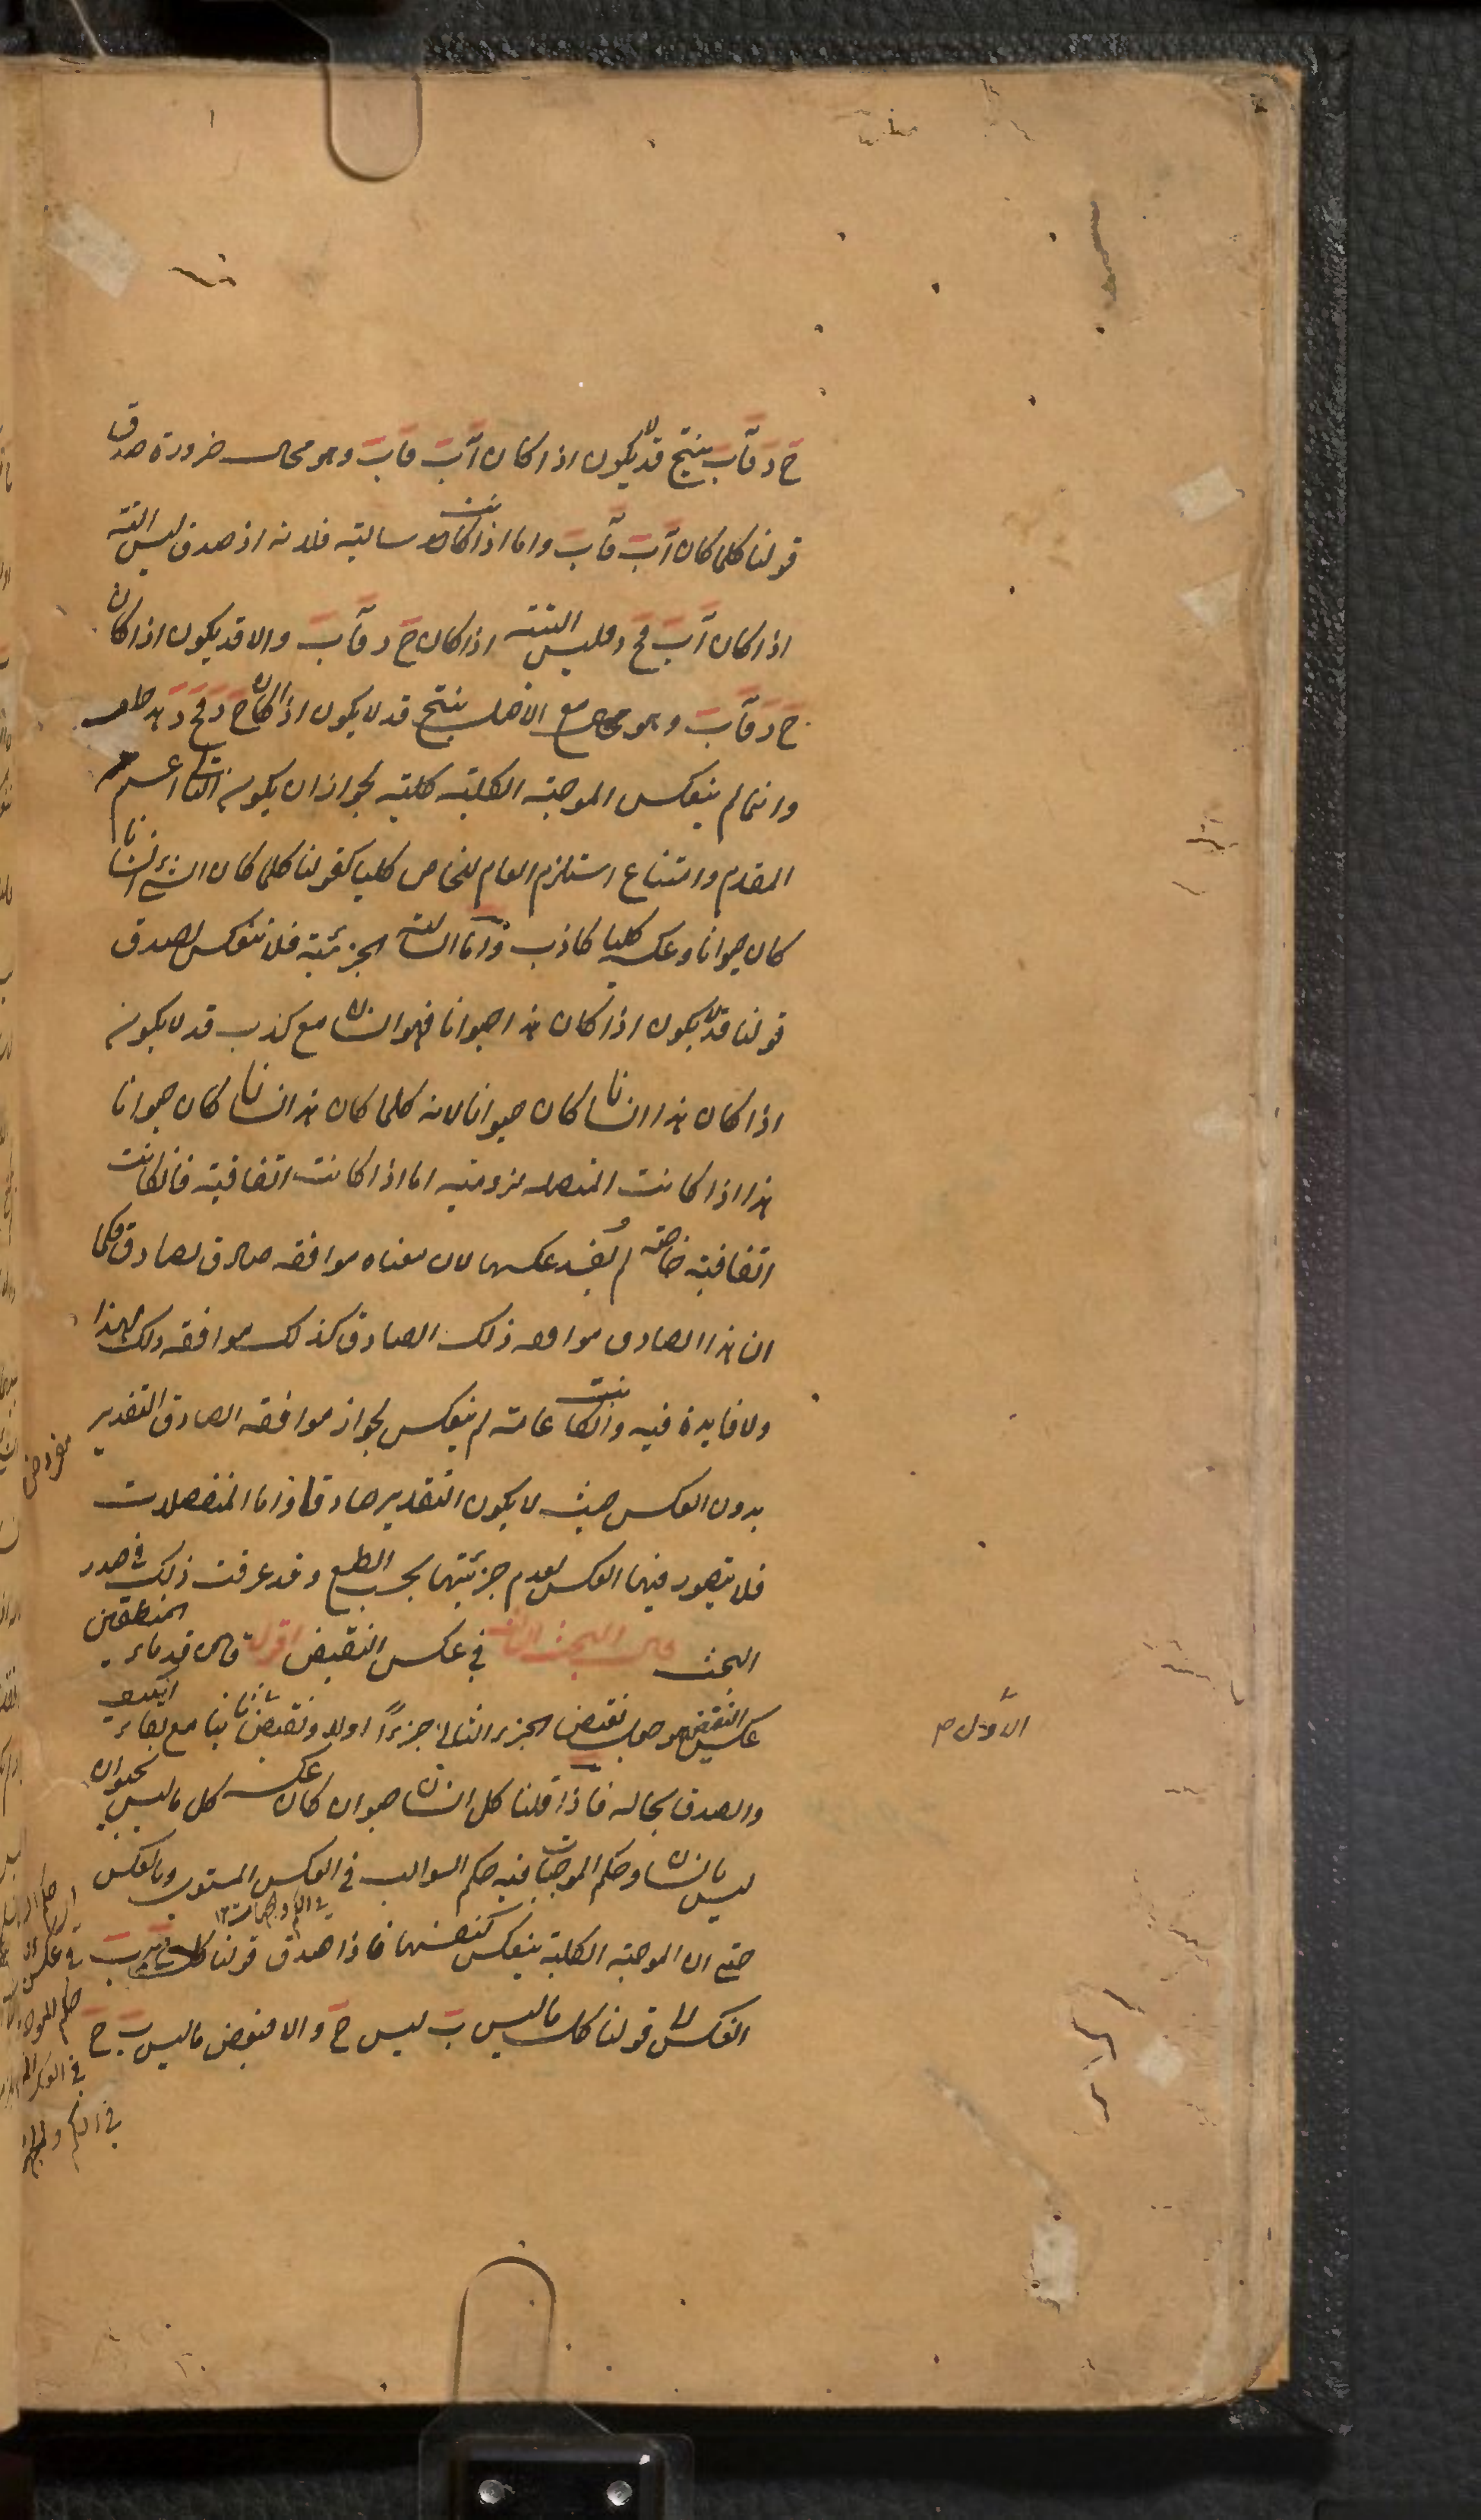 ج د فآب ينتج قد لا يكون اذا كان آب فآب وهو محال ضرورة صدق
قولنا كلما كان آب فآب واما اذا كانت سالبة فلانه اذ صدق ليس البتة
اذا كان آب فج د فليس البتة اذا كان ج د فآب والا قد يكون اذا كان
ج د فآب وهو مع الاصل ينتج قد لا يكون اذا كان ج د فج د هذا خلف
وانما لم ينعكس الموجبة الكلية كلية لجواز ان يكون التالى اعم من
المقدم وامتناع استلزم العام للخاص كليا كقولنا كلما كان الشئ انسانا
كان حيوانا وعكسه كليا كاذب واما السالبة الجزئية فلا تنعكس لصدق
قولنا قد لا يكون اذا كان هذا حيوانا فهو انسان مع كذب قد لا يكون
اذا كان هذا انسانا كان حيوانا لانه كلما كان هذا انسانا كان حيوانا
هذا اذا كانت المتصلة لزومية اما اذا كانت اتفاقية فان كانت
اتفاقية خاصة لم يفد عكسها لان معناه موافقة صادق لصادق فكما
ان هذا الصادق موافقه ذلك الصادق كذلك موافقه ذلك لهذا
ولا فايدة فيه وان كانت عامة لم ينعكس لجواز موافقة الصادق التقدير
مفروض
بدون العكس حيث لا يكون التقدير صادقا واما المنفصلات
فلا يتصور فيها العكس لعدم جزئيتها بحسب الطبع وقد عرفت ذلك فى صدر
البحث قال البحث الثالث فى عكس النقيض اقول قال قدماء المنطقين
عكس النقيض هو جعل نقيض الجزء الثانى جزءًا اولا ونقيض ثانيا مع بقاء الكيف
الاول صح
والصدق بحاله فاذا قلنا كل انسان حيوان كان عكسه كل ما ليس بحيوان
ليس بانسان وحكم الموجبات فيه حكم السوالب فى العكس المستوى وبالعكس
فى الكم والجهات ١٢
حتى ان الموجبة الكلية ينعكس كنفسها فاذا صدق قولنا كل ج ب
انعكس الى قولنا كل ما ليس ب ليس ج والا فبعض ما ليس ب ج